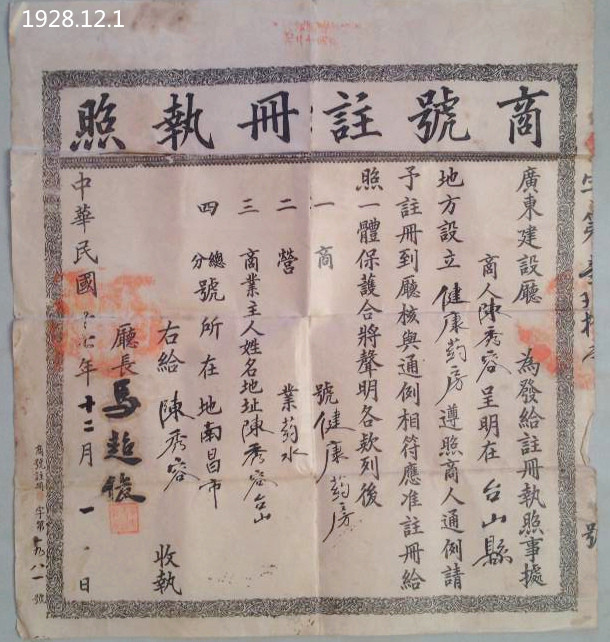 1928.12.1
商號註冊執照
廣東建設廳 為發給註冊執照事據
商人陳秀容呈明在台山縣
地方設立健康葯房遵照商人通例請
予註冊到廳核與通例相符應准註冊給
照一體保護合將聲明各欵列後
一 商 號健康葯房
二 營 業葯水
三 商業主人姓名地址陳秀容台山
四 總分號所在地南昌市
右給 陳秀容 收執
廳長馬超俊
中華民國十七年十二月一日
商號註冊 字第 九八一號